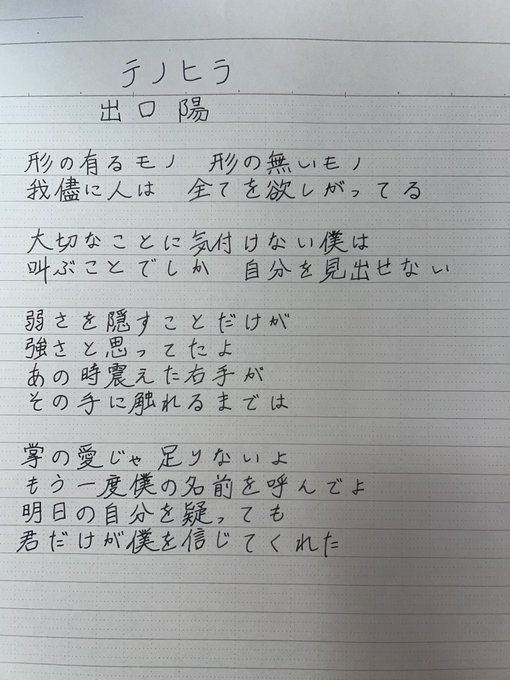 テノヒラ
出口陽
形の有るモノ　形の無いモノ
我儘に人は　全てを欲しがってる
大切なことに気付けない僕は
叫ぶことでしか　自分を見出せない
弱さを隠すことだけが
強さと思ってたよ
あの時震えた右手が
その手に触れるまでは
掌の愛じゃ足りないよ
もう一度僕の名前を呼んでよ
明日の自分を疑っても
君だけが僕を信じてくれた